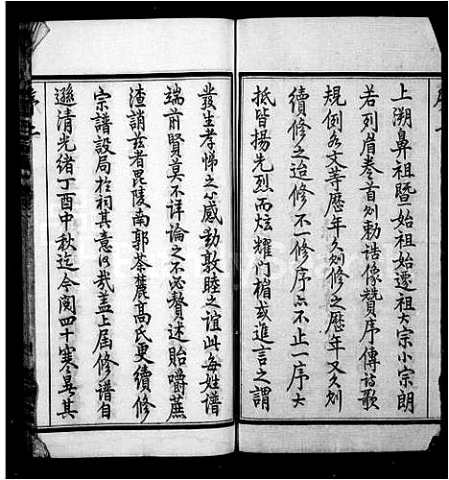 序
上溯鼻祖暨一始祖始遷祖大宗小宗朗
若列眉卷首列勅誥像贊序傳詩歌
規例各文等歷年久則修之歷年又久則
續修之迨修不一修序亦不止一序大
抵皆揚先烈而炫耀門楣或進言之謂
發生孝悌之感動敦睦之誼此每姓譜
端前賢莫不詳論之不必贅述貽嚼蔗
渣誚茲者毘陵南郭茶麓高氏更續修
宗譜設局於祠其意何哉蓋上屆修譜自
遜清光緒丁酉中秋迄今閱四十寒暑其
序二